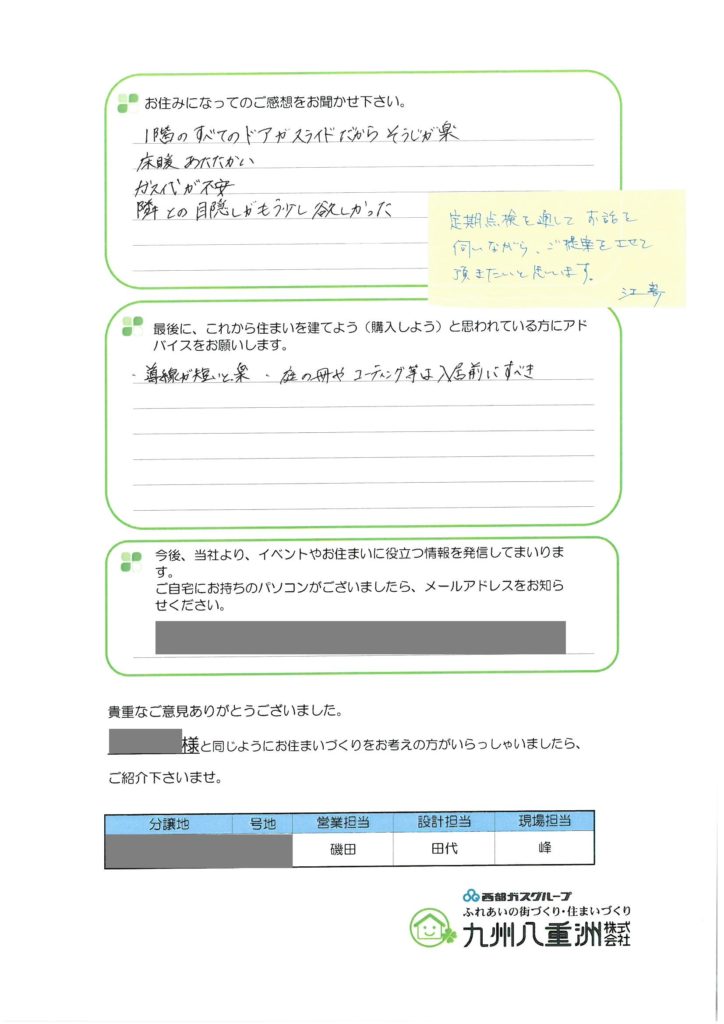 お住みになってのご感想をお聞かせ下さい。
1階のすべてのドアがスライドだから そうじが楽
床暖 あたたかい
ガス代が不安
隣との目隠しがもう少し欲しかった
定期点検を通して お話を
伺いながら、ご提案をさせて
頂きたいと思います。
最後に、これから住まいを建てよう（購入しよう）と思われている方にアド
バイスをお願いします。
・導線が短いと楽 ・庭の冊や コーティング等は入居前にすべき
今後、当社より、イベントやお住まいに役立つ情報を発信してまいりま
す。
ご自宅にお持ちのパソコンがございましたら、メールアドレスをお知ら
せください。
貴重なご意見ありがとうございました。
様と同じようにお住まいづくりをお考えの方がいらっしゃいましたら、
ご紹介下さいませ。
分譲地 号地 営業担当 設計担当 現場担当
磯田 田代 峰
西部ガスグループ
ふれあいの街づくり・住まいづくり
九州八重洲株式会社